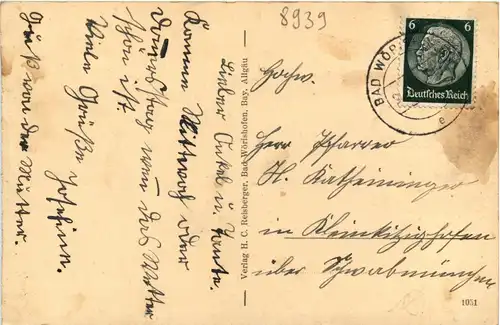 8939
Lieber Onkel u. Tante.
Komme Mittwoch oder
Donnerstag wenn das Wetter
schön ist.
Viele Grüße Josefine.
Gruß von der Mutter.
Verlag H. C. Reisberger, Bad Wörishofen, Bay. Allgäu
6 6
Deutsches Reich
BAD WÖRI
e
Hochw.
Herrn Pfarrer
H. Katheininger
in Kleinkitzighofen
über Schwabmünchen
1051